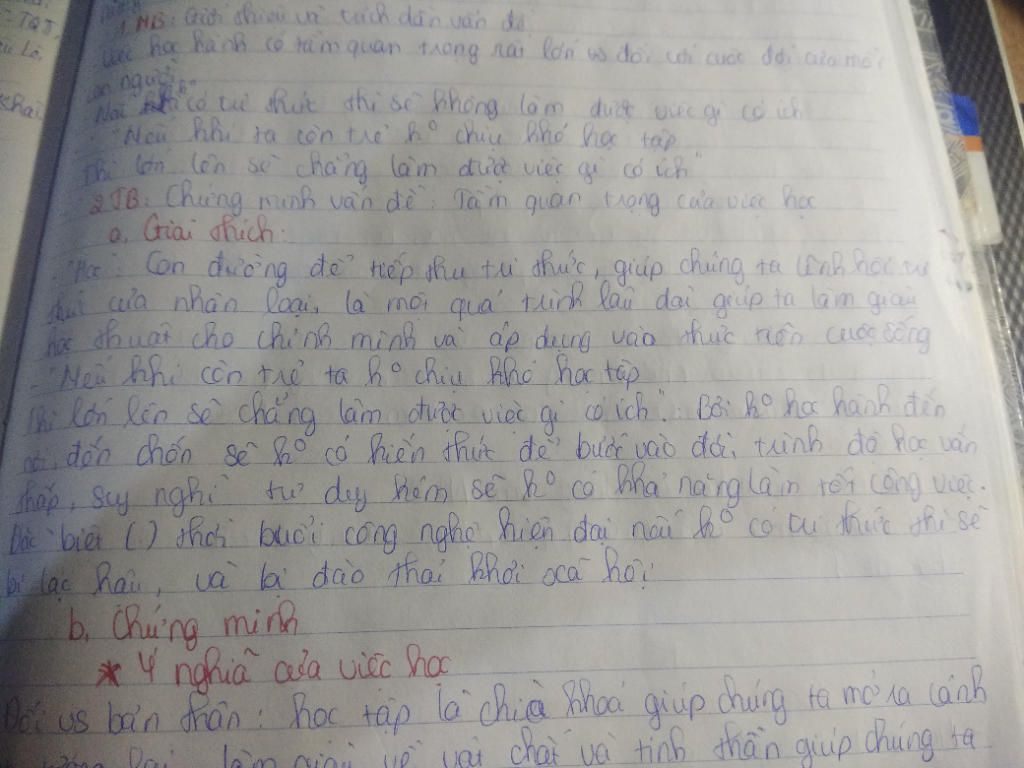 1, MB: Giới thiệu và trích dẫn vấn đề
việc học hành có tầm quan trọng rất lớn vs đối với cuộc đời của mỗi
con người
Nếu có tri thức thì sẽ không làm được việc gì có ích
"Nếu khi ta còn trẻ k⁰ chịu khó học tập
Thì lớn lên sẽ chẳng làm được việc gì có ích"
2 TB: Chứng minh vấn đề: Tầm quan trọng của việc học
a, Giải thích:
- "Học": Con đường để tiếp thu tri thức, giúp chúng ta lĩnh hội tri
thức của nhân loại, là một quá trình lâu dài giúp ta làm giàu
học thuật cho chính mình và áp dụng vào thực tiễn cuộc sống
- "Nếu khi còn trẻ ta k⁰ chịu khó học tập
Thì lớn lên sẽ chẳng làm được việc gì có ích": Bởi k⁰ học hành đến
nơi, đến chốn sẽ k⁰ có kiến thức để bước vào đời, trình độ học vấn
thấp, suy nghĩ tư duy kém sẽ k⁰ có khả năng làm tốt công việc.
Đặc biệt (.) thời buổi công nghệ hiện đại nếu k⁰ có tri thức thì sẽ
bị lạc hậu, và bị đào thải khỏi xã hội
b, Chứng minh
* Ý nghĩa của việc học
Đối vs bản thân: học tập là chìa khoá giúp chúng ta mở ra cánh
làm giàu về vật chất và tinh thần giúp chúng ta